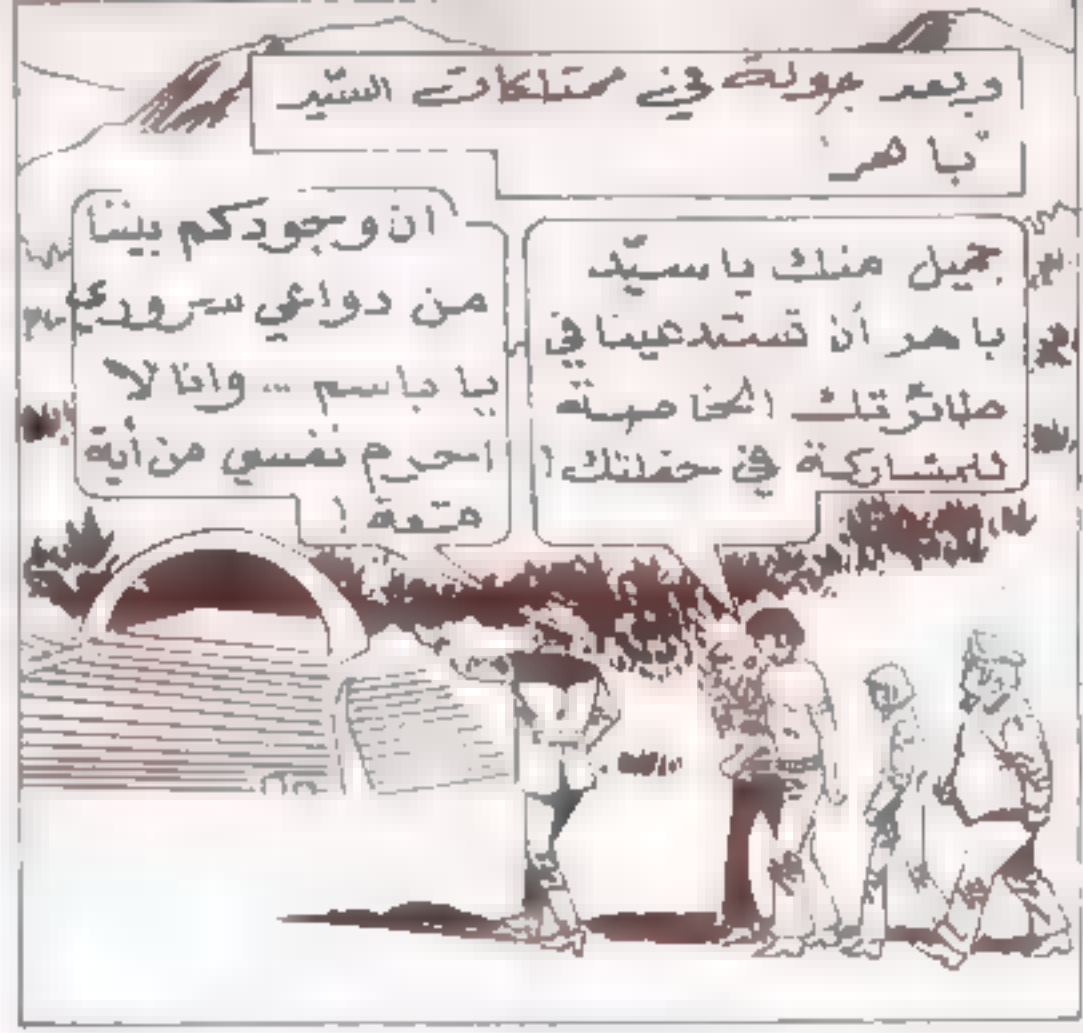 وبعد جولة في ممتلكات السيّد
"باهر"
جميل منك يا سيّد
باهر أن تستدعينا في
طائرتك الخاصة
للمشاركة في حفلتك !
ان وجودكم بيننا
من دواعي سروري
يا باسم ... وانا لا
احرم نفسي من أية
متعة !